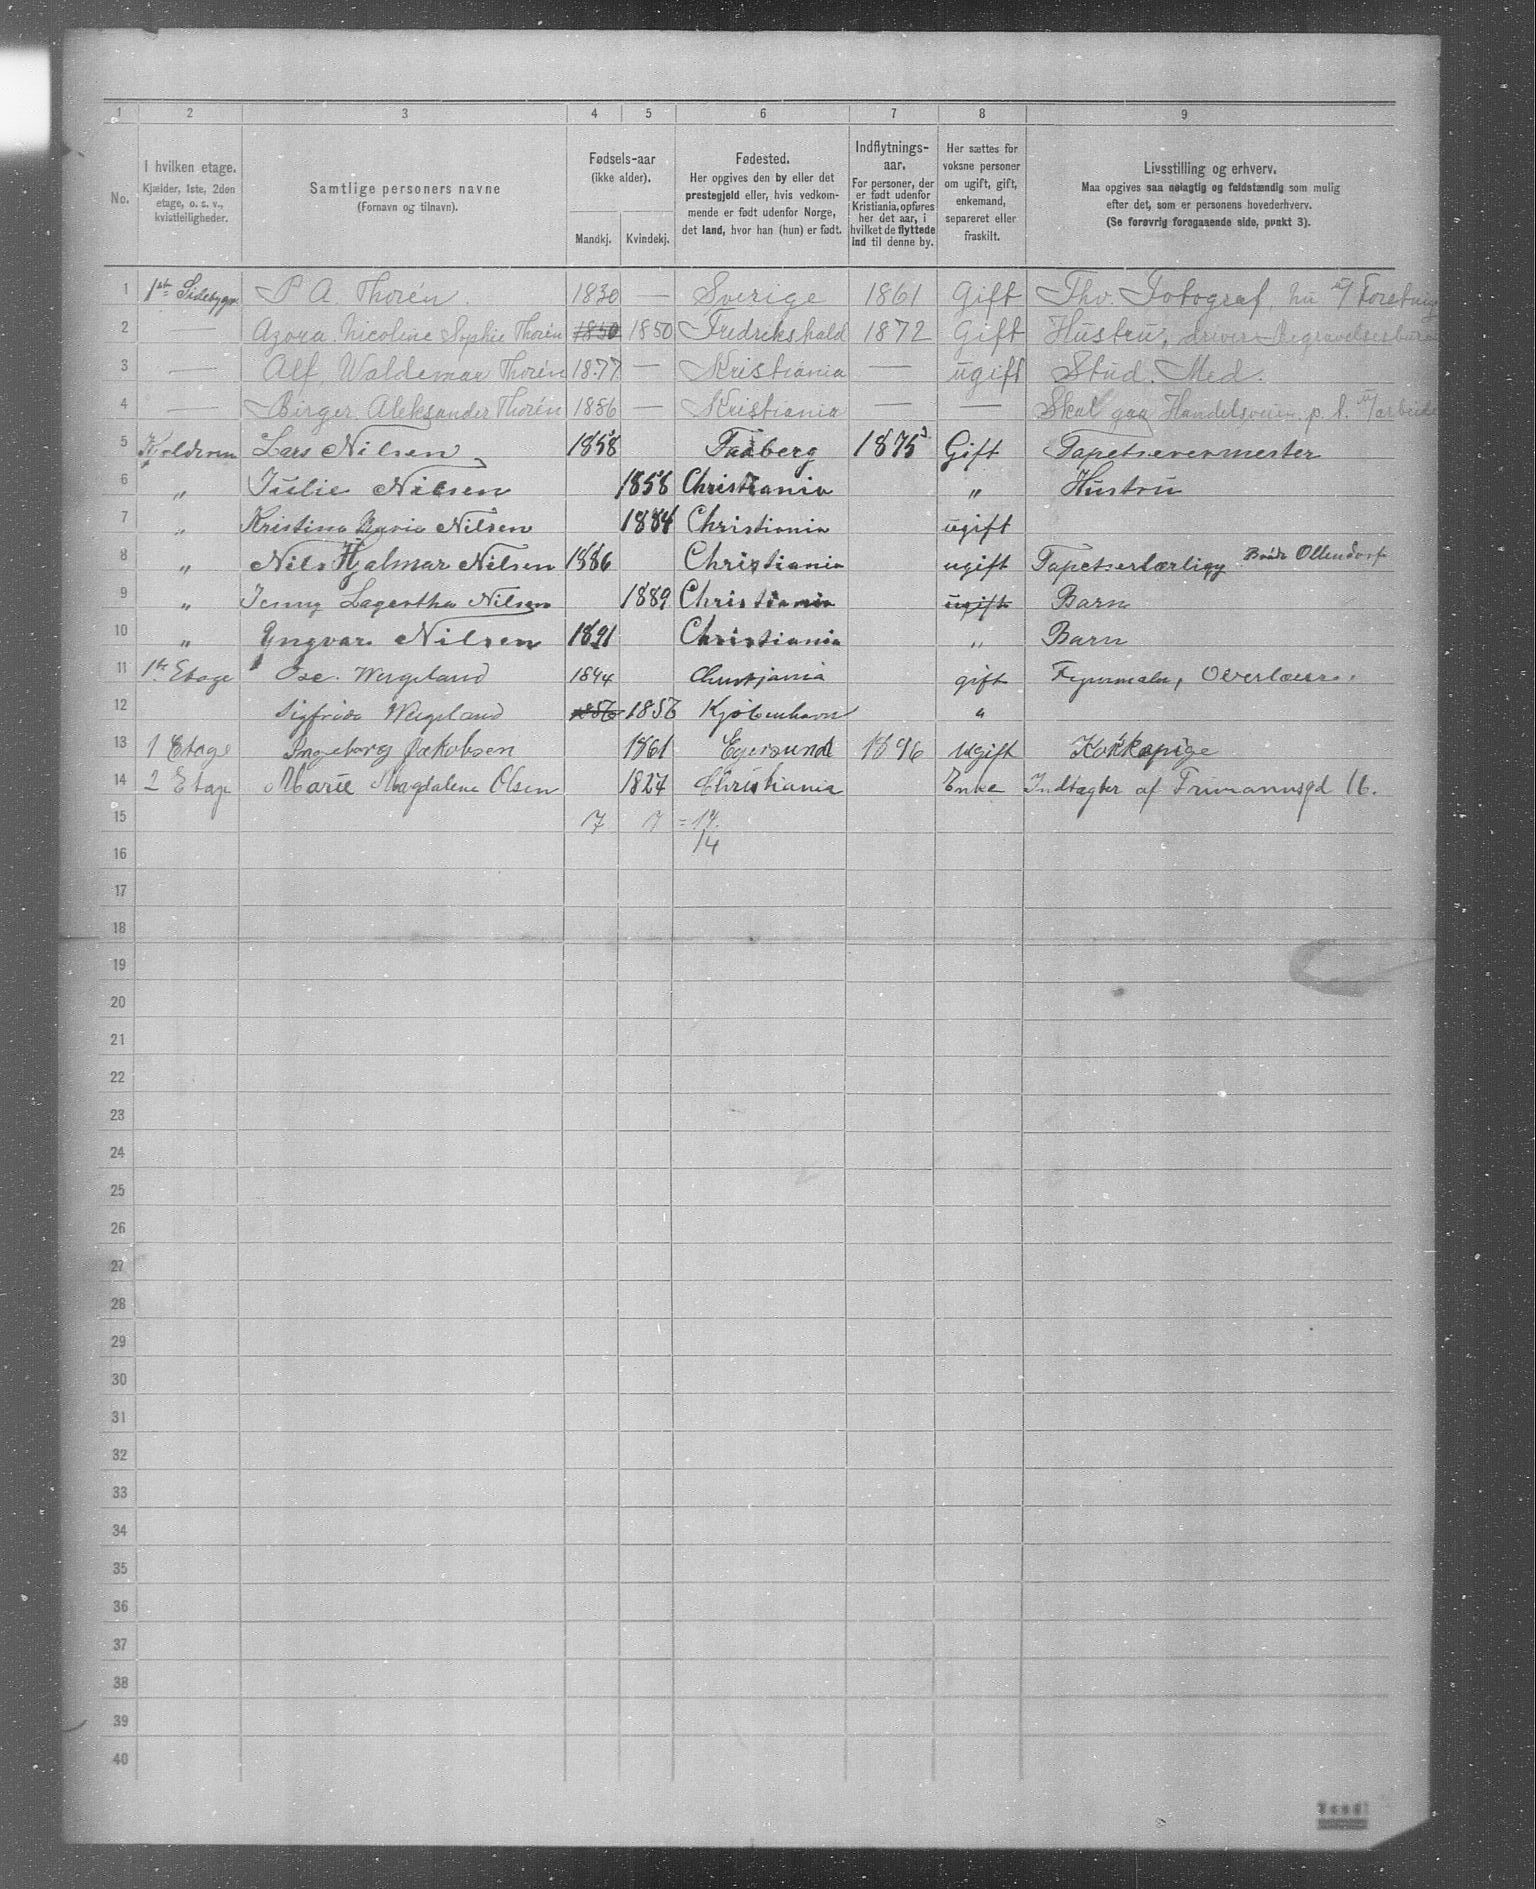 1 2 3 4 5 6 7 8 9
No.
I hvilken etage.
Kjælder, 1ste, 2den
etage, o. s. v.,
kvistleiligheder.
Samtlige personers navne
(Fornavn og tilnavn).
Fødsels-aar
(ikke alder).
Mandkj. Kvindekj.
Fødested.
Her opgives den by eller det
prestegjeld eller, hvis vedkom-
mende er født udenfor Norge,
det land, hvor han (hun) er født.
Indflytnings-
aar.
For personer, der
er født udenfor
Kristiania, opføres
her det aar, i
hvilket de flyttede
ind til denne by.
Her sættes for
voksne personer
om ugift, gift,
enkemand,
separeret eller
fraskilt.
Livsstilling og erhverv.
Maa opgives saa nøiagtig og fuldstændig som mulig
efter det, som er personens hovederhverv.
(Se forøvrig foregaaende side, punkt 3).
1 1ste Sidebygn. P A. Thorén. 1830 — Sverige 1861 Gift Fotograf, nu
2 — Nicoline Sophie Thorén 1850 1850 Fredrikshald 1872 Gift Hustru, driver Begravelsesbureau
3 — Alf Waldemar Thorén 1877. — Kristiania — ugift Stud. Med.
4 — Birger Aleksander Thorén 1886 — Kristiania — — Skal gaa p. t.
5 Kjelderen Lars Nilsen 1858 Faaberg 1875 Gift Tapetserermester
6 „ Julie Nilsen 1858 Christiania „ Hustru
7 „ Kristina Maria Nilsen 1884 Christiania ugift
8 „ Nils Hjalmar Nilsen 1886 Christiania ugift Tapetserlærling Ollendorf
9 „ Jenny Lagertha Nilsen 1889 Christiania ugift Barn
10 „ Yngvar Nilsen 1891 Christiania „ Barn
11 1ste Etage Osc. Wergeland 1844 Christiania gift Figurmaler, Overlærer.
12 Sigfrida Wergeland 1856 1856 Kjøbenhavn "
13 1 Etage Ingeborg Jakobsen 1861 Egersund 1896 Ugift Kokkepige
14 2 Etage Marie Magdalene Olsen 1827 Christiania Enke Indtægter af Frimannsgd 16.
15 7 7 = 14.
14
16
17
18
19
20
21
22
23
24
25
26
27
28
29
30
31
32
33
34
35
36
37
38
39
40